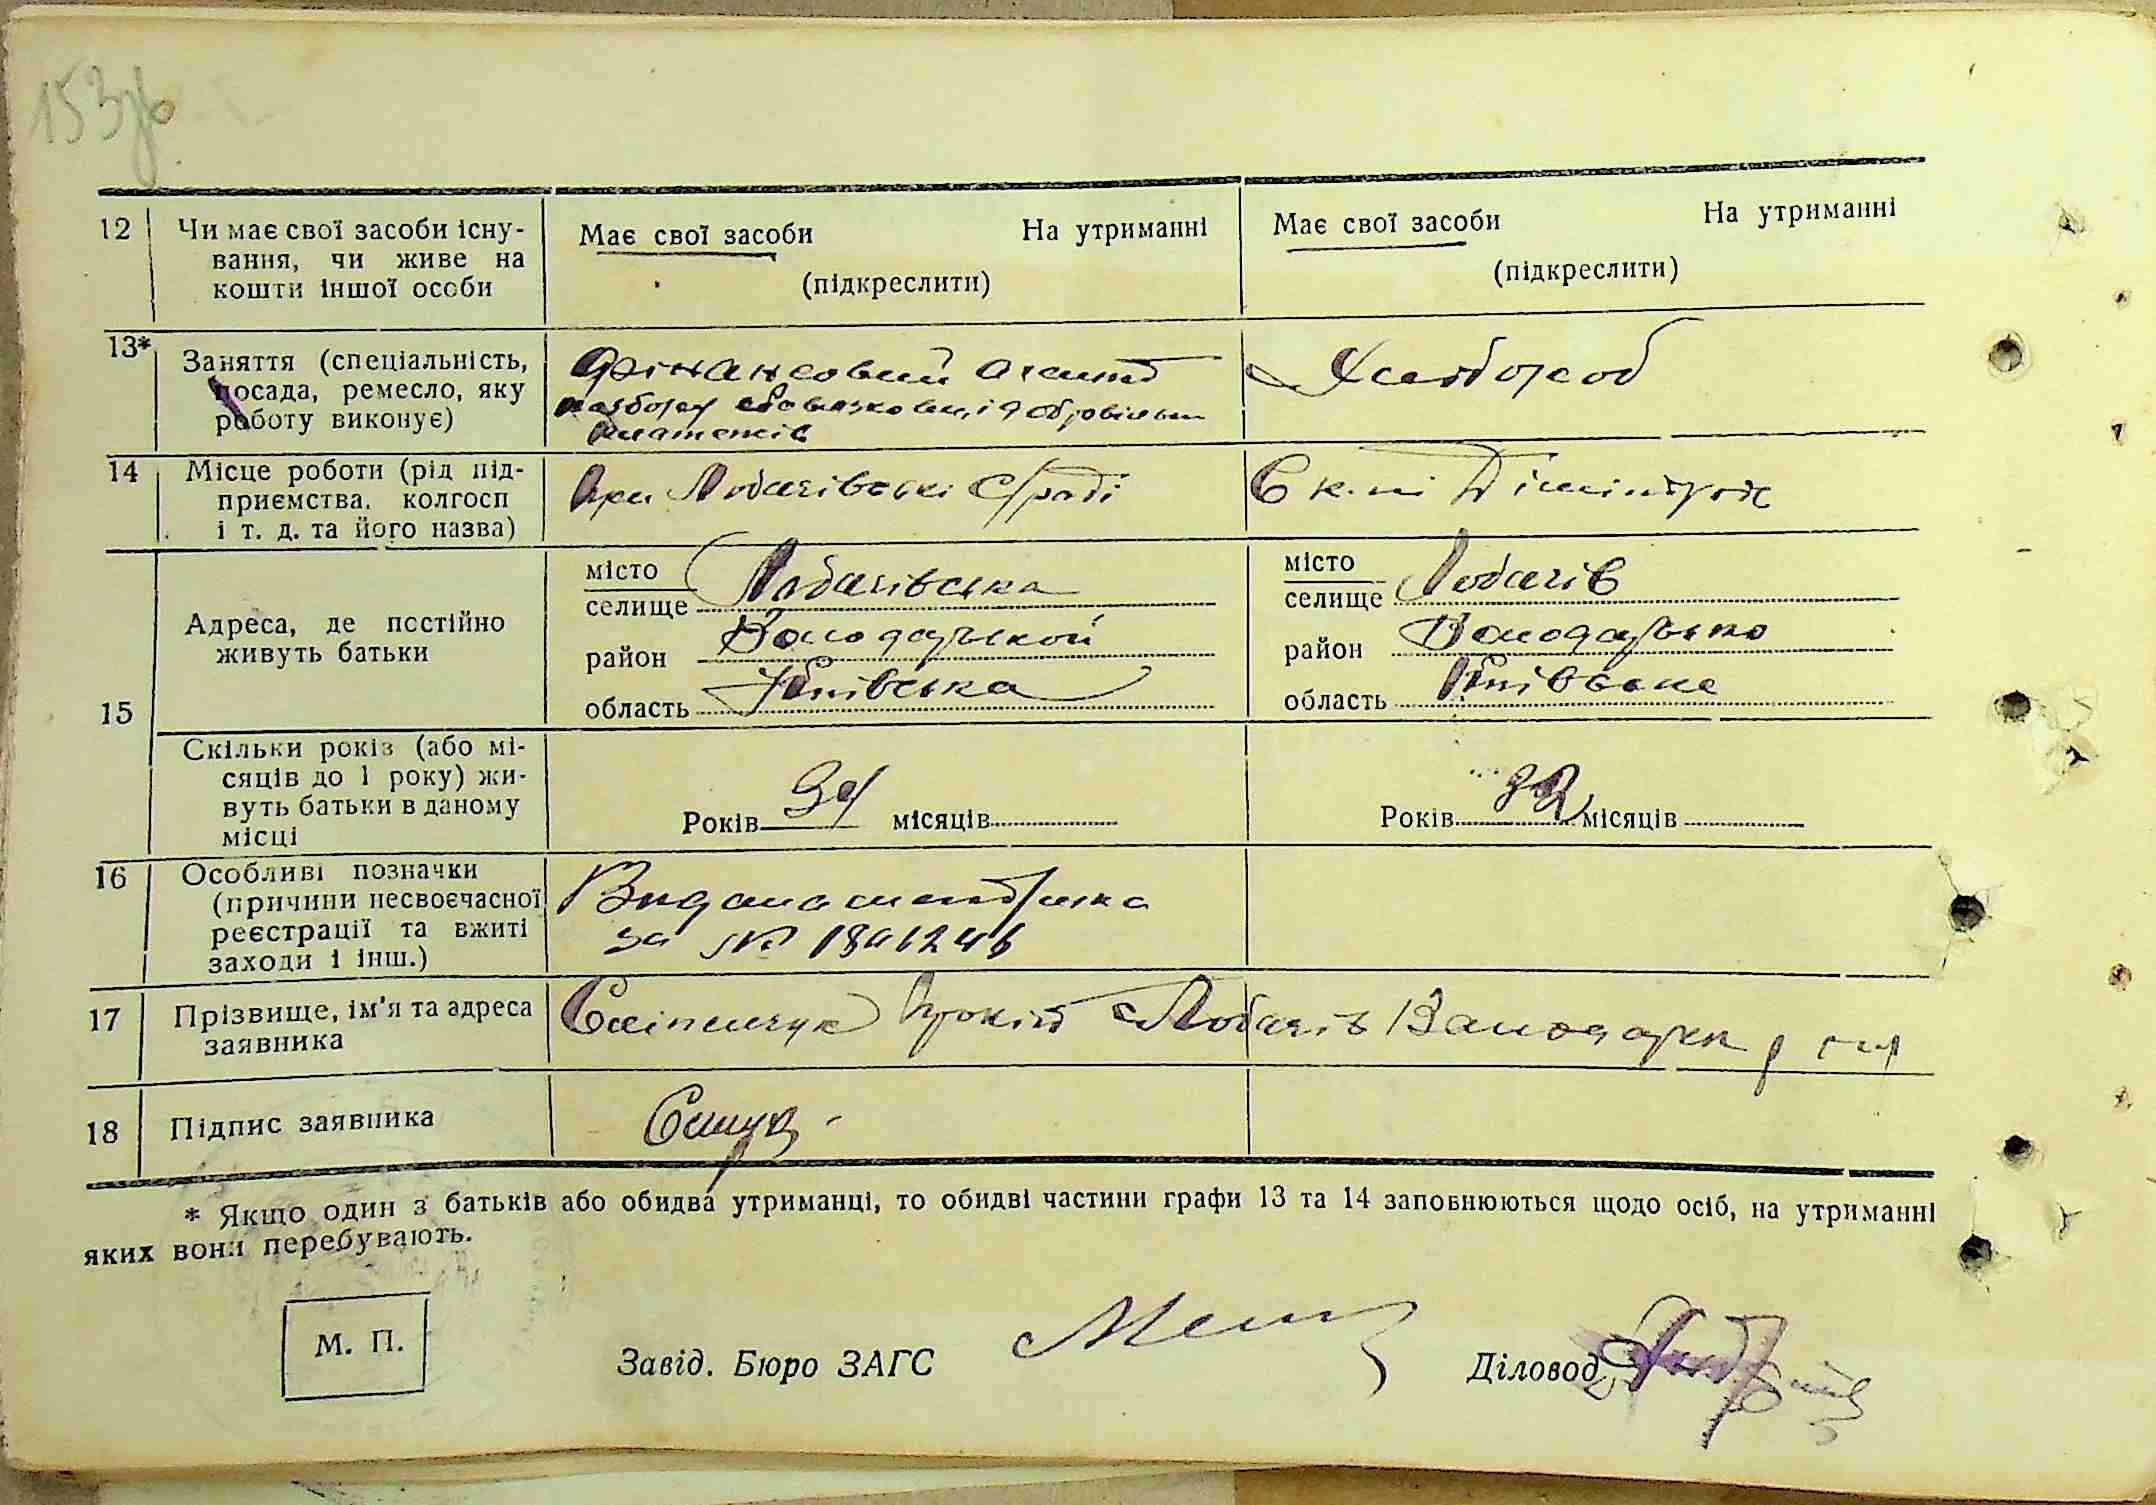 153зв
12 Чи має свої засоби існу-
вання, чи живе на
кошти іншої особи
Має свої засоби На утриманні
(підкреслити)
Має свої засоби На утриманні
(підкреслити)
13* Заняття (спеціальність,
посада, ремесло, яку
роботу виконує)
Фінансовий агент
платежів
Хлібороб
14 Місце роботи (рід під-
приємства, колгосп
і т. д. та його назва)
При Лобачівські с/раді
15 Адреса, де постійно
живуть батьки
місто
селище Лобачівська
район Володарськой
область Київська
місто
селище Лобачів
район Володарсько
область Київська
Скільки років (або мі-
сяців до 1 року) жи-
вуть батьки в даному
місці
Років 34 місяців
Років 32 місяців
16 Особливі позначки
(причини несвоєчасної
реєстрації та вжиті
заходи і інш.)
Видана
за №
17 Прізвище, ім'я та адреса
заявника
Прокіп с Лобачів Володарск р
18 Підпис заявника
* Якщо один з батьків або обидва утриманці, то обидві частини графи 13 та 14 заповнюються щодо осіб, на утриманні
яких вони перебувають.
М. П.
Завід. Бюро ЗАГС
Діловод